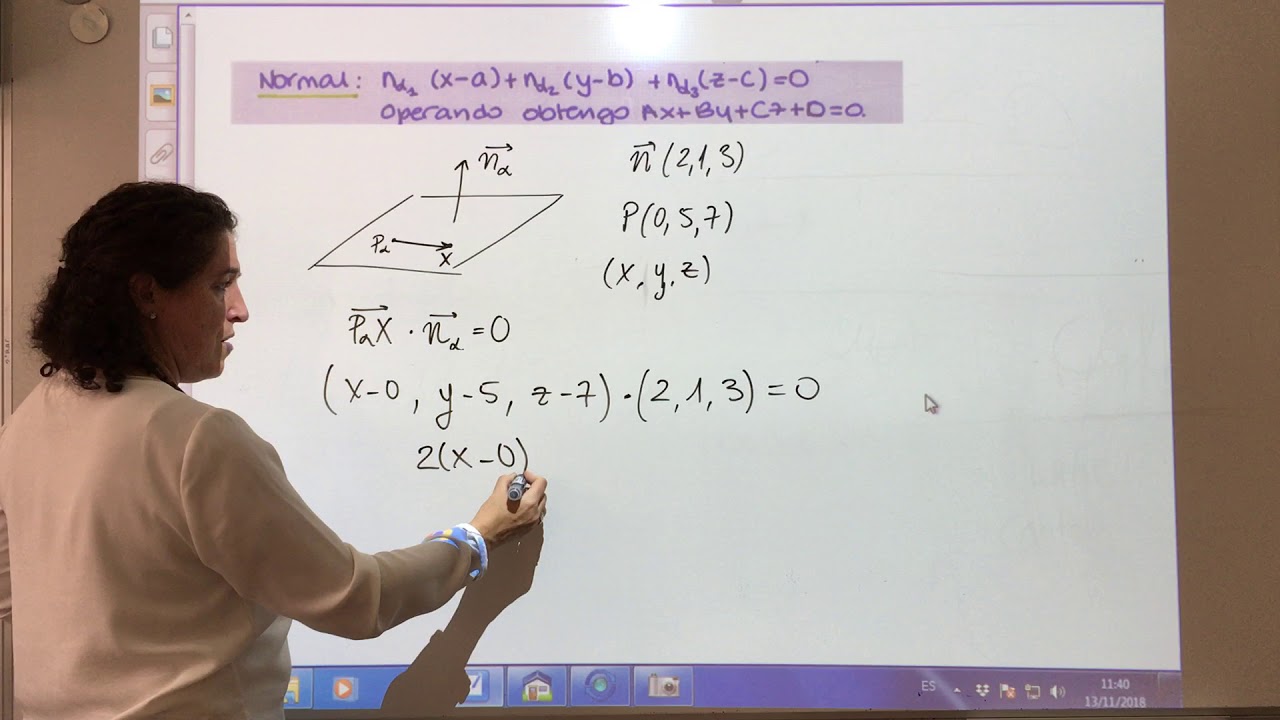 Normal: nα₁ (x-a)+nα₂(y-b) +nα₃(z-c)=0
Operando obtengo Ax+By+Cz+D=0.
n⃗α
n⃗ (2,1,3)
P(0,5,7)
Pα
X
(x, y, z)
PαX⃗ · n⃗α = 0
(x-0, y-5, z-7)·(2,1,3)=0
2(x-0)
ES
11:40
13/11/2018